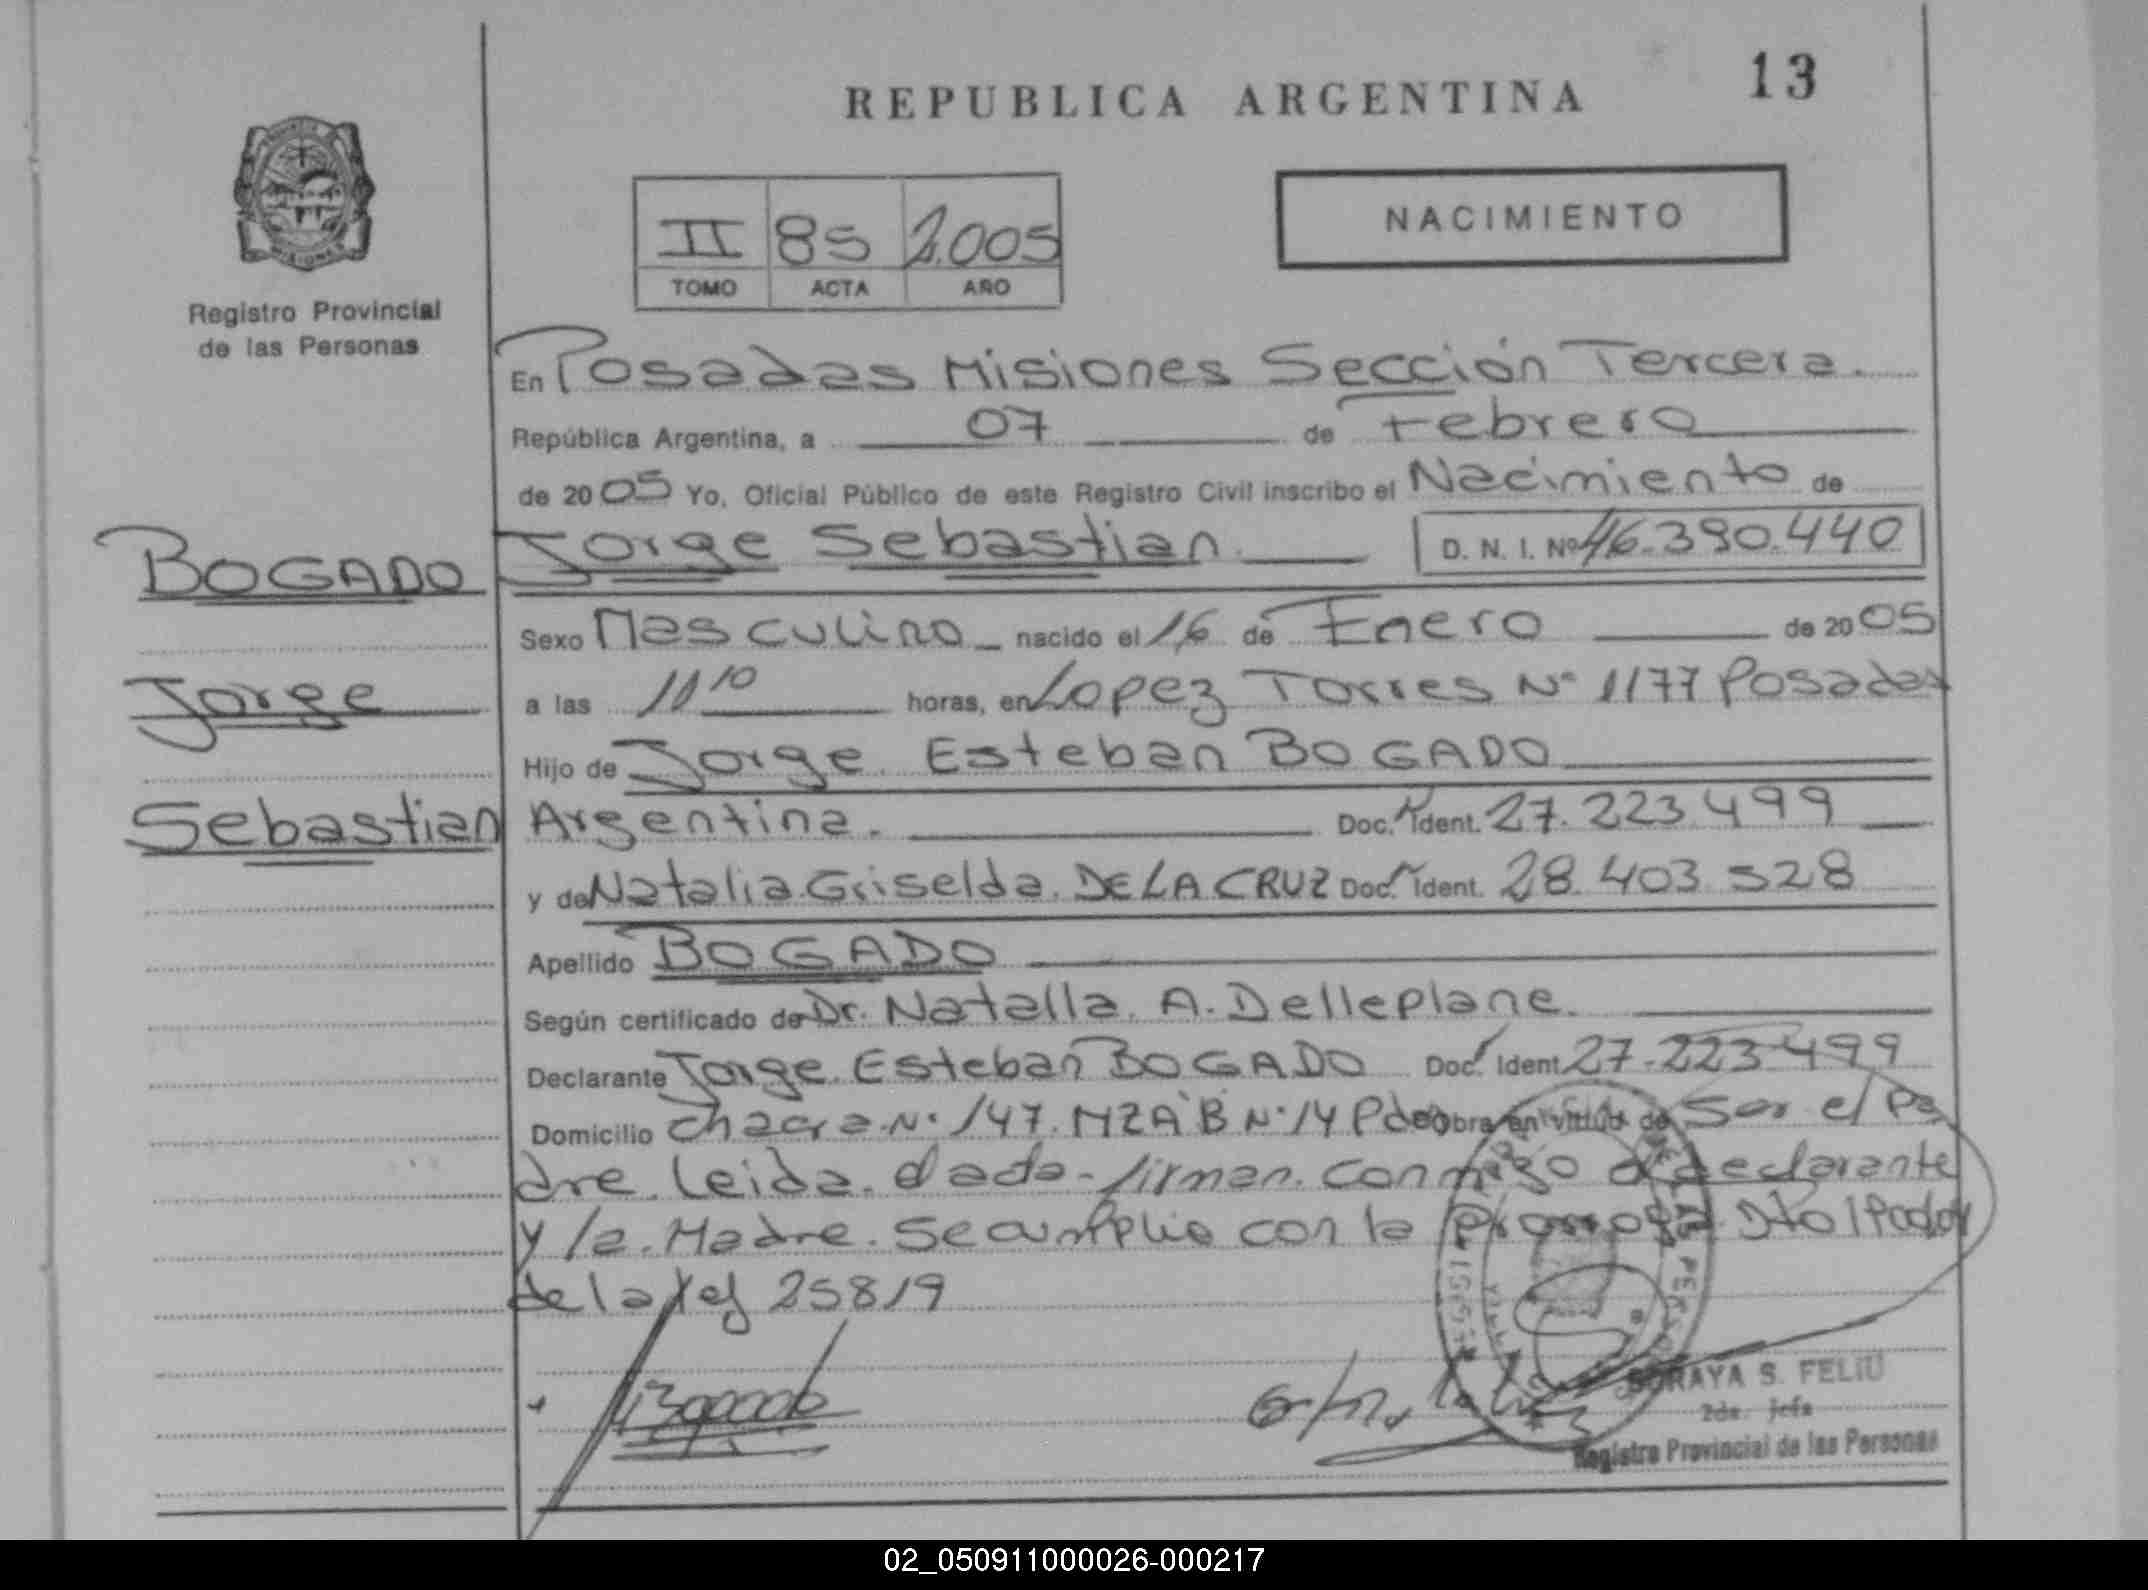 REPUBLICA ARGENTINA
13
Registro Provincial
de las Personas
II 85 2.005
TOMO ACTA AÑO
NACIMIENTO
En Posadas Misiones Sección Tercera.
República Argentina, a 07 de Febrero
de 2005 Yo, Oficial Público de este Registro Civil inscribo el Nacimiento de
Jorge Sebastian. D. N. I. Nº 46.390.440
BOGADO
Jorge
Sebastian
Sexo Masculino nacido el 16 de Enero de 2005
a las 11 10 horas, en Lopez Torres Nº 1177 Posadas
Hijo de Jorge Esteban BOGADO
Argentina. Doc. Ident. 27.223.499
y de Natalia Griselda DE LA CRUZ Doc. Ident. 28.403.528
Apellido BOGADO
Según certificado de Dr. Natalia A. Delleplane.
Declarante Jorge Esteban BOGADO Doc. Ident. 27.223.499
Domicilio Chacra Nº 147 MZA B Nº 14 Pdas obra en virtud de Ser el Pa
dre. Leida. el acta. firman. conmigo el declarante
y la Madre. Se cumplio con la Prorroga
de la Ley 25819
Bogado
SORAYA S. FELIU
2da. Jefa
Registro Provincial de las Personas
02_050911000026-000217